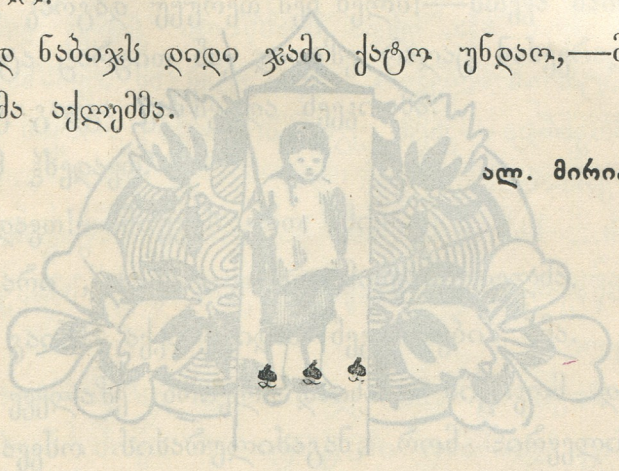 დ ნაბიჯს დიდი ჯამი ქატო უნდაო,—
მა აქლემმა.
ალ. მირია